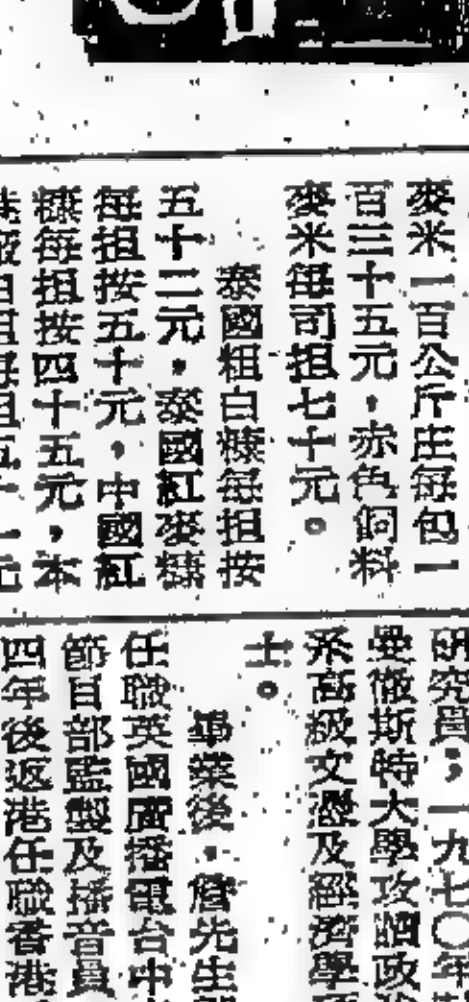 麥米一百公斤庄每包一
百三十五元,赤色飼料
麥米每司担七十元。
泰國粗白糠每担按
五十二元,泰國紅麥糠
每担按五十元,中國紅
糠每担按四十五元,本
研究員;一九七〇年
曼徹斯特大學攻讀政
系高級文憑及經濟學
士。
畢業後,詹先生
任職英國廣播電台中
節目部監製及播音員
四年後返港任職香港